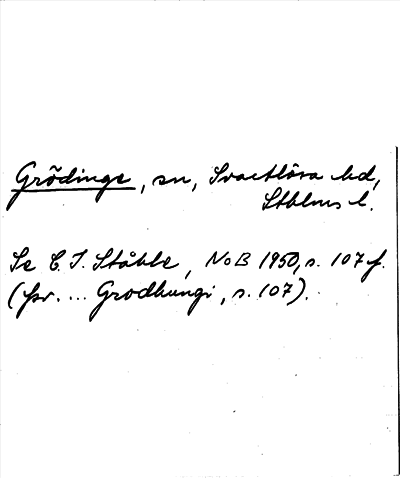 Grödinge, sn, Svartlösa hd,
Sthlms l.
Se C. I. Ståhle, NoB 1950, s. 107 f.
(fsv. ... Grodhungi, s. 107).